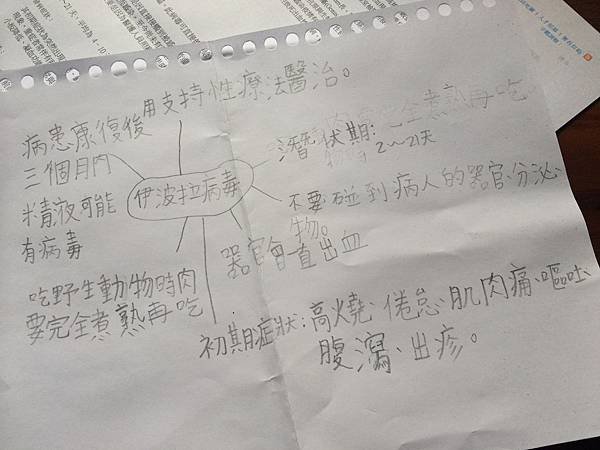 用支持性療法醫治。
病患康復後
三個月內
精液可能
有病毒
伊波拉病毒
潛伏期:
2~21天
不要碰到病人的器官分泌
物。
器官會一直出血
吃野生動物時肉
要完全煮熟再吃
初期症狀:高燒、倦怠、肌肉痛、嘔吐、
腹瀉、出疹。